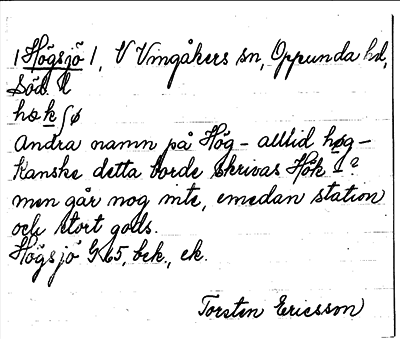 |Högsjö|, V Vingåkers sn, Oppunda hd,
Söd.
høkʃø
Andra namn på Hög- alltid høg-
Kanske detta borde skrivas Hök-?
men går nog inte, emedan station
och stort gods.
Högsjö G 65, bek., ek.
Torsten Ericsson